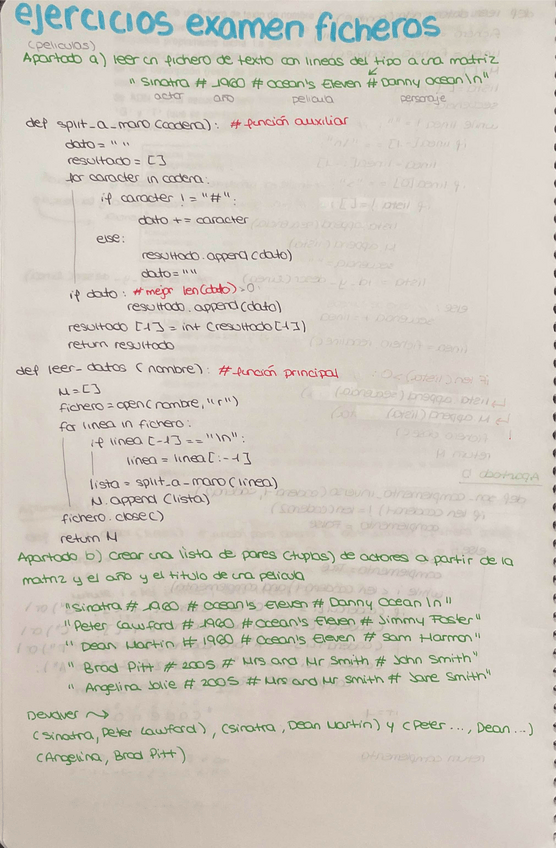 ejercicios examen ficheros
(películas)
Apartado a) leer un fichero de texto con líneas del tipo a una matriz
"Sinatra # 1960 # Ocean's Eleven # Danny Ocean \n"
actor año película personaje
def split_a_mano(cadena): #función auxiliar
dato = " "
resultado = []
for caracter in cadena:
if caracter != "#":
dato += caracter
else:
resultado.append(dato)
dato = ""
if dato: #mejor len(dato)>0
resultado.append(dato)
resultado [1] = int (resultado[1])
return resultado
def leer_datos (nombre): #función principal
M = []
fichero = open(nombre, "r")
for linea in fichero:
if linea [-1] == "\n":
linea = linea[:-1]
lista = split_a_mano(linea)
M.append(lista)
fichero.close()
return M
Apartado b) Crear una lista de pares (tuplas) de actores a partir de la
matriz y el año y el título de una película
"Sinatra # 1960 # Ocean's Eleven # Danny Ocean \n"
"Peter Lawford # 1960 # Ocean's Eleven # Jimmy Foster"
"Dean Martin # 1960 # Ocean's Eleven # Sam Harmon"
"Brad Pitt # 2005 # Mrs and Mr Smith # John Smith"
"Angelina Jolie # 2005 # Mrs and Mr Smith # Jane Smith"
Devolver →
(Sinatra, Peter Lawford), (Sinatra, Dean Martin) y (Peter..., Dean...)
(Angelina, Brad Pitt)